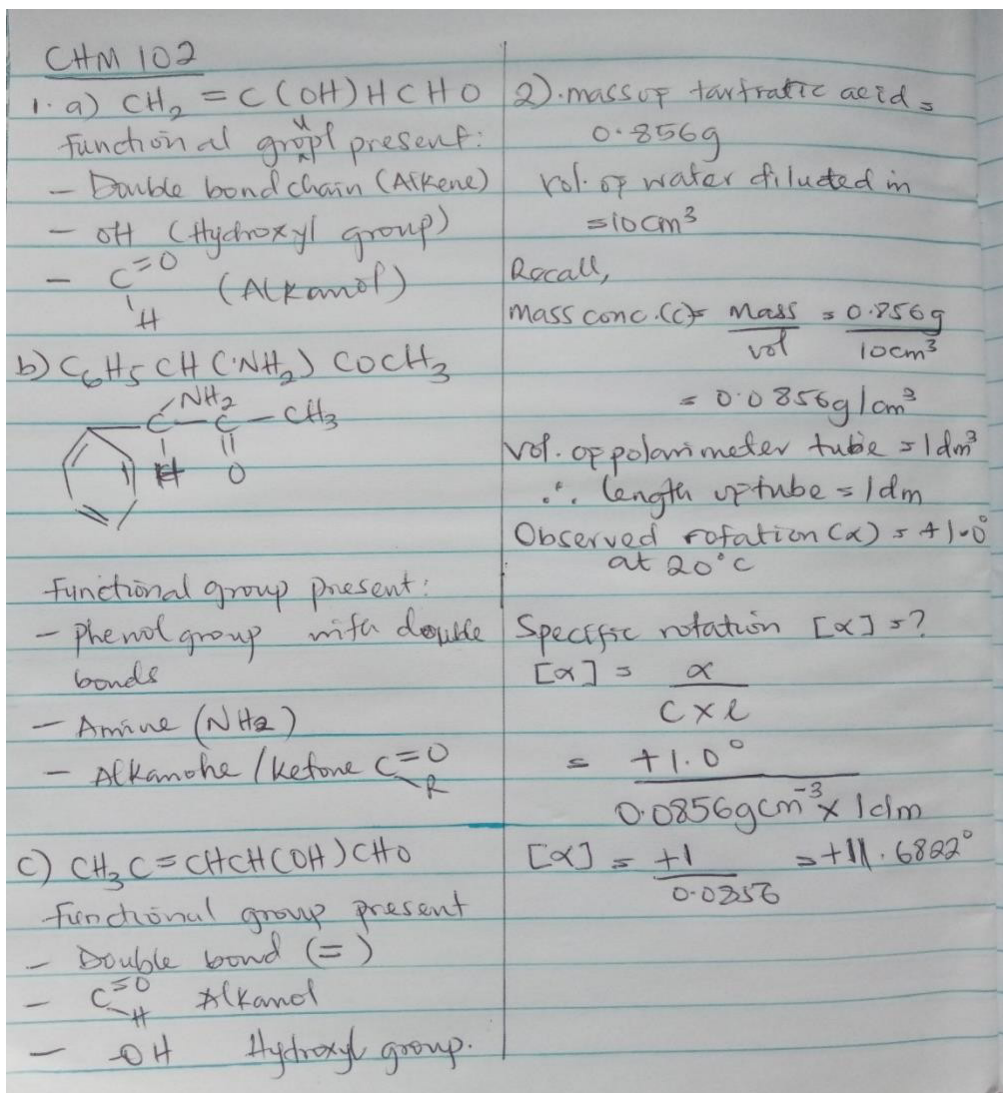 CHM 102
1. a) CH₂ = C(OH)HCHO
Functional gropl present:
- Double bond chain (Alkene)
- OH (Hydroxyl group)
- C=O (Alkanol)
H
b) C₆H₅CH(NH₂)COCH₃
NH₂
C - C - CH₃
H O
Functional group present:
- phenol group with double
bonds
- Amine (NH₂)
- Alkanone / ketone C=O
R
c) CH₃C=CHCH(OH)CHO
Functional group present
- Double bond (=)
- C=O Alkanol
H
- -OH Hydroxyl group.
2). mass of tartratic acid =
0.856g
Vol. of water diluted in
=10cm³
Recall,
Mass conc.(C)= Mass = 0.856g
vol 10cm³
= 0.0856g/cm³
Vol. of polarimeter tube = 1dm³
∴ length of tube = 1dm
Observed rotation (α) = +1.0°
at 20°C
Specific rotation [α] = ?
[α] = α
C x l
= +1.0°
0.0856gcm⁻³ x 1dm
[α] = +1 = +11.6822°
0.0856